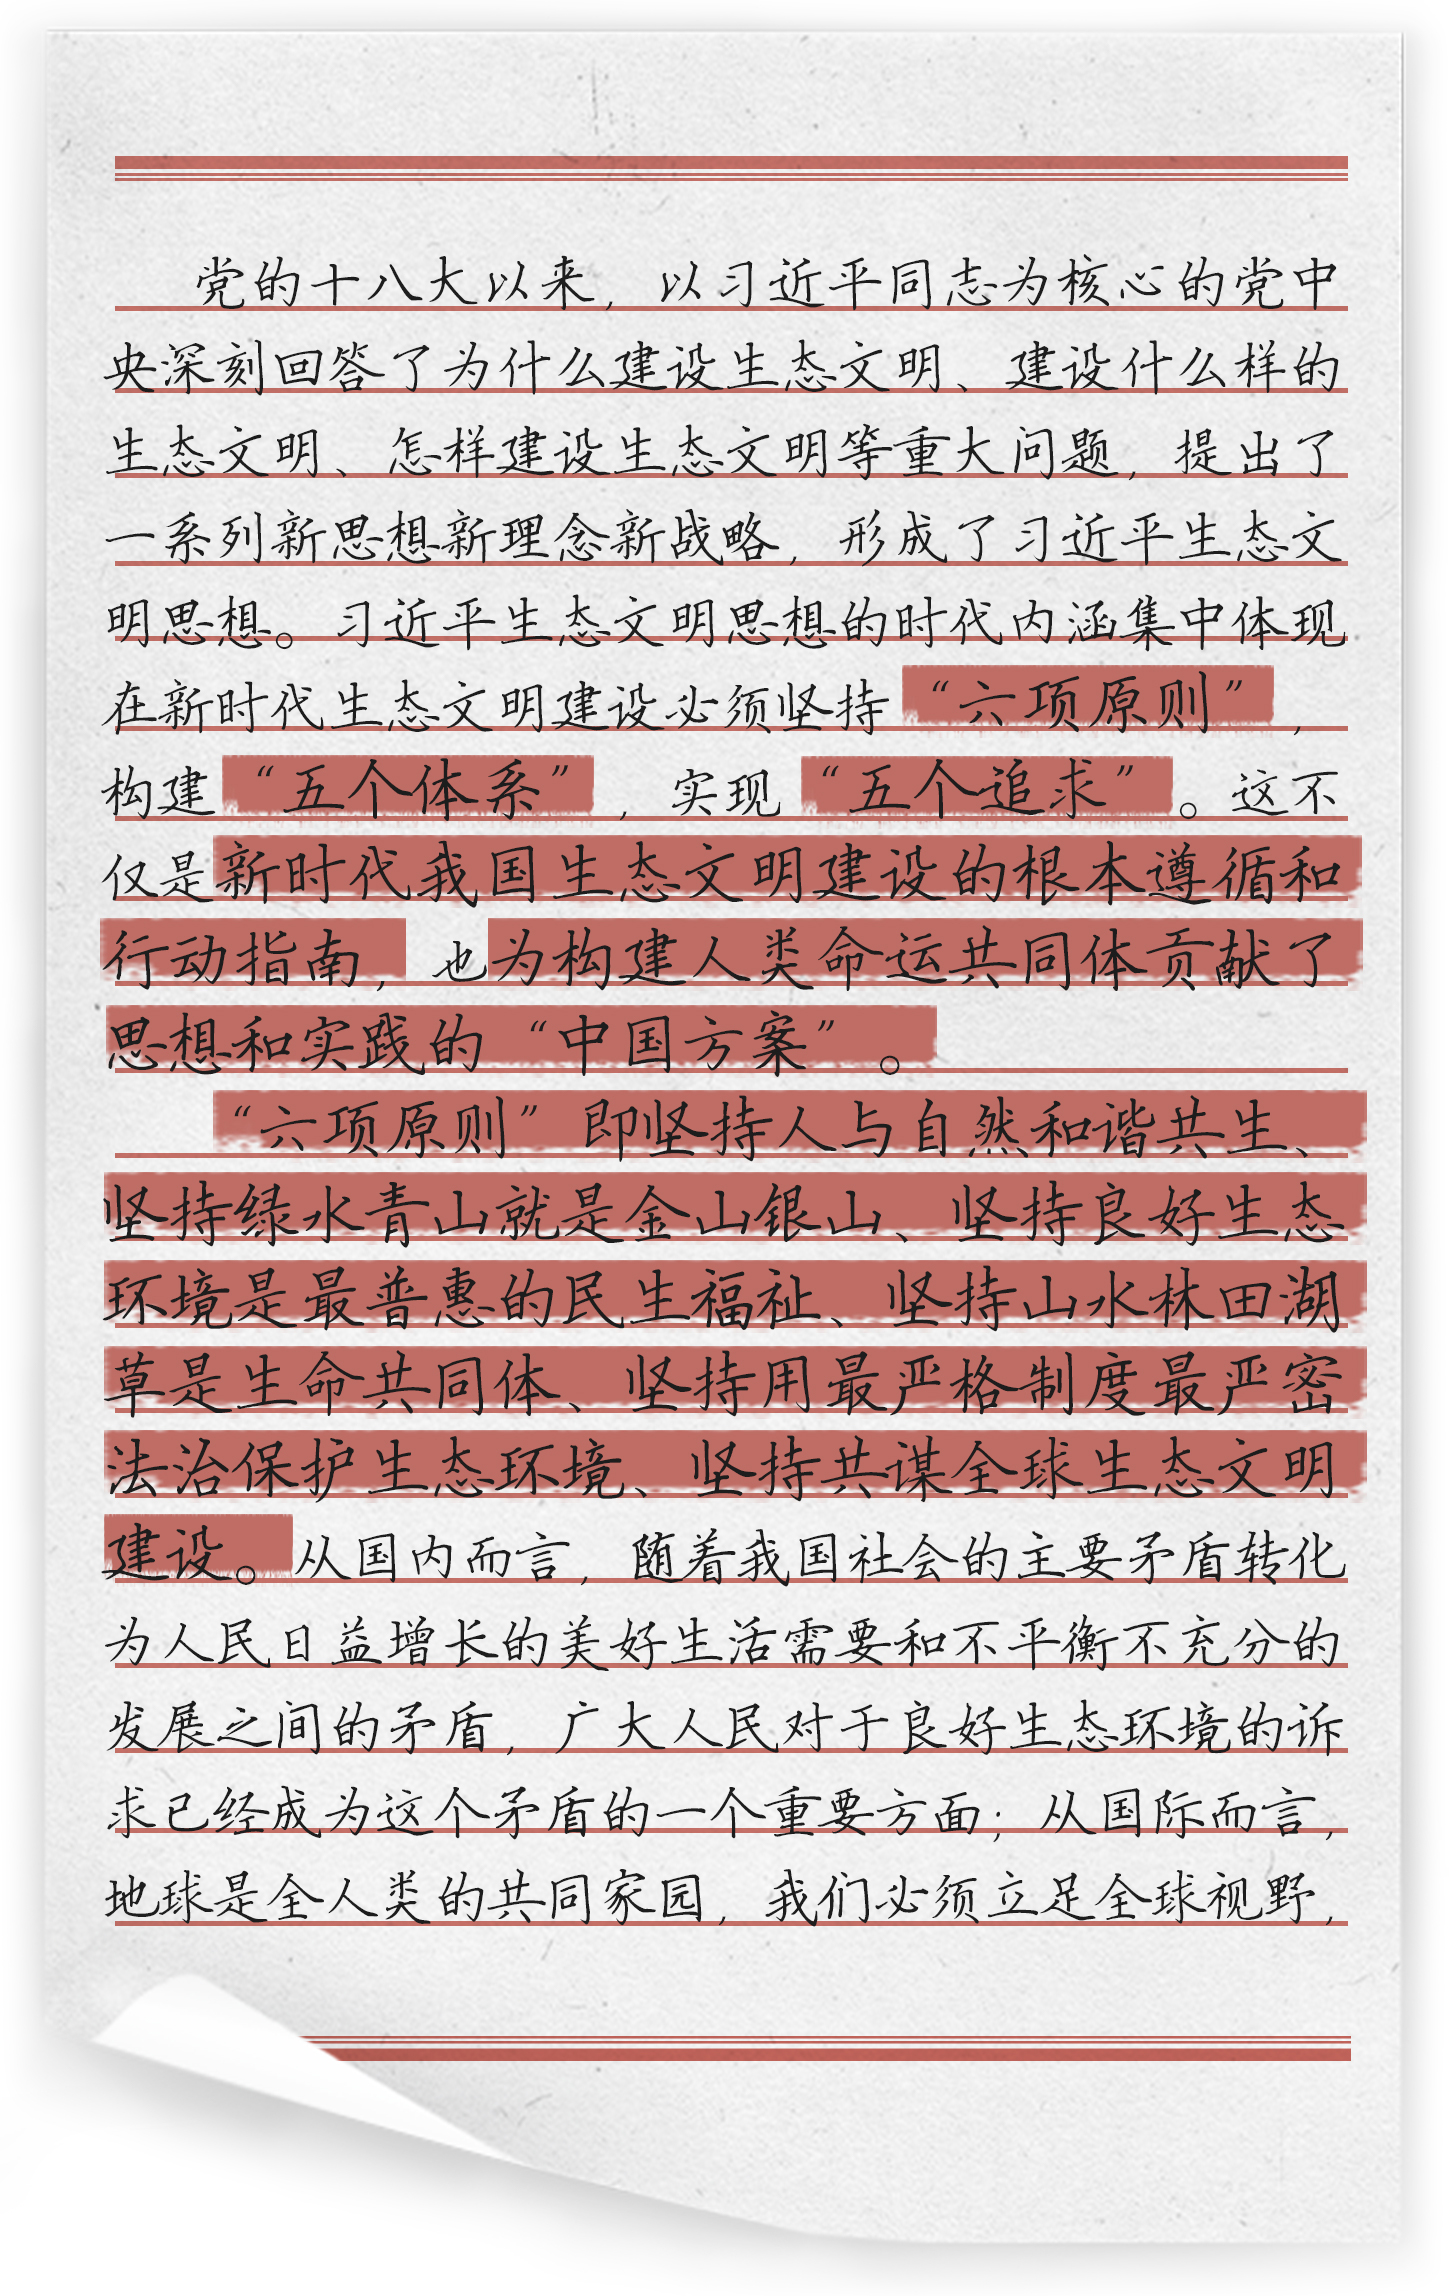 党的十八大以来，以习近平同志为核心的党中
央深刻回答了为什么建设生态文明、建设什么样的
生态文明、怎样建设生态文明等重大问题，提出了
一系列新思想新理念新战略，形成了习近平生态文
明思想。习近平生态文明思想的时代内涵集中体现
在新时代生态文明建设必须坚持“六项原则”，
构建“五个体系”，实现“五个追求”。这不
仅是新时代我国生态文明建设的根本遵循和
行动指南，也为构建人类命运共同体贡献了
思想和实践的“中国方案”。
“六项原则”即坚持人与自然和谐共生、
坚持绿水青山就是金山银山、坚持良好生态
环境是最普惠的民生福祉、坚持山水林田湖
草是生命共同体、坚持用最严格制度最严密
法治保护生态环境、坚持共谋全球生态文明
建设。从国内而言，随着我国社会的主要矛盾转化
为人民日益增长的美好生活需要和不平衡不充分的
发展之间的矛盾，广大人民对于良好生态环境的诉
求已经成为这个矛盾的一个重要方面；从国际而言，
地球是全人类的共同家园，我们必须立足全球视野，